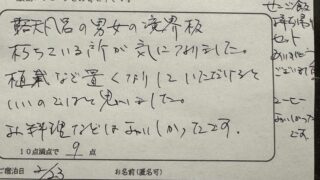 露天風呂の男女の境界板
朽ちている所が気になりました。
植栽など置くなりしていただけると
いいのではと思いました。
お料理などはおいしかったです。
10点満点で 9 点
ご宿泊日 2/23 お名前(匿名可)
セット
ありがとう
ございました
コーヒー
おいしかった
です。